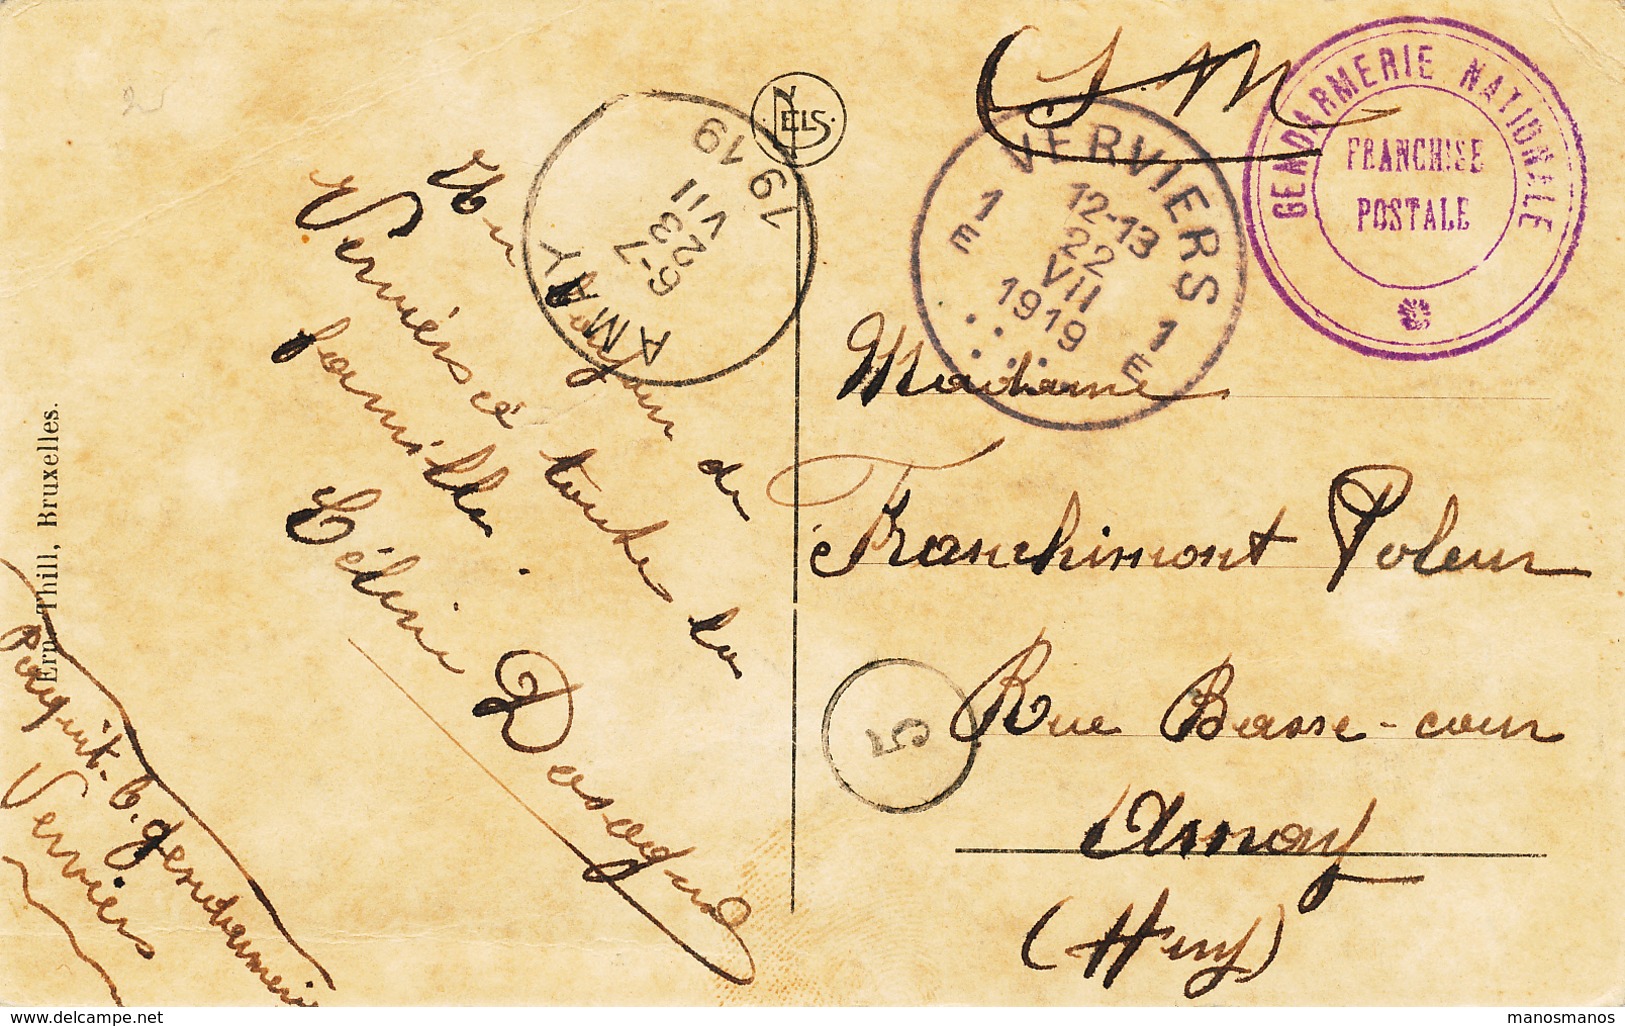 S.M.
GENDARMERIE NATIONALE
FRANCHISE
POSTALE
VERVIERS
1
E
12-13
22
VII
1919
1
E
NELS
AMAY
6-7
23
VII
1919
Un bonjour de
Verviers à toute la
famille.
Céline
Madame
Franchimont Poleur
Rue Basse-cour
Amay
(Huy)
5
Ern. Thill, Bruxelles.
gendarmerie
Verviers
www.delcampe.net
manosmanos